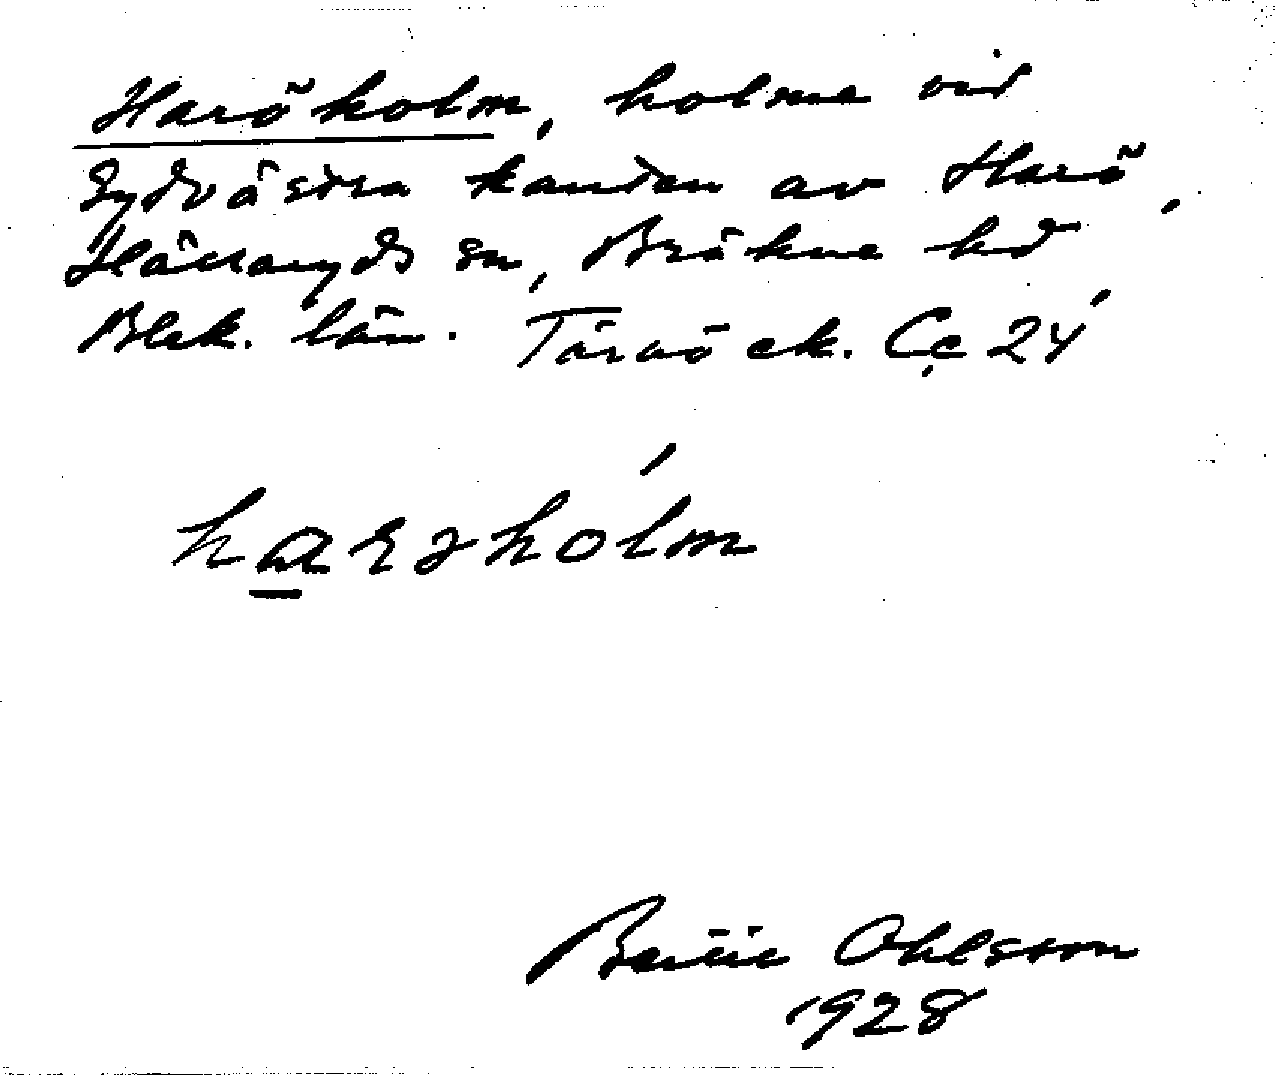 Haröholm, holme vid
sydvästra kanten av Harö,
Hällaryds sn, Bräkne hd
Blek. län. Tärnö ek. Cc 24
harəhólm
Bertil Ohlsson
1928